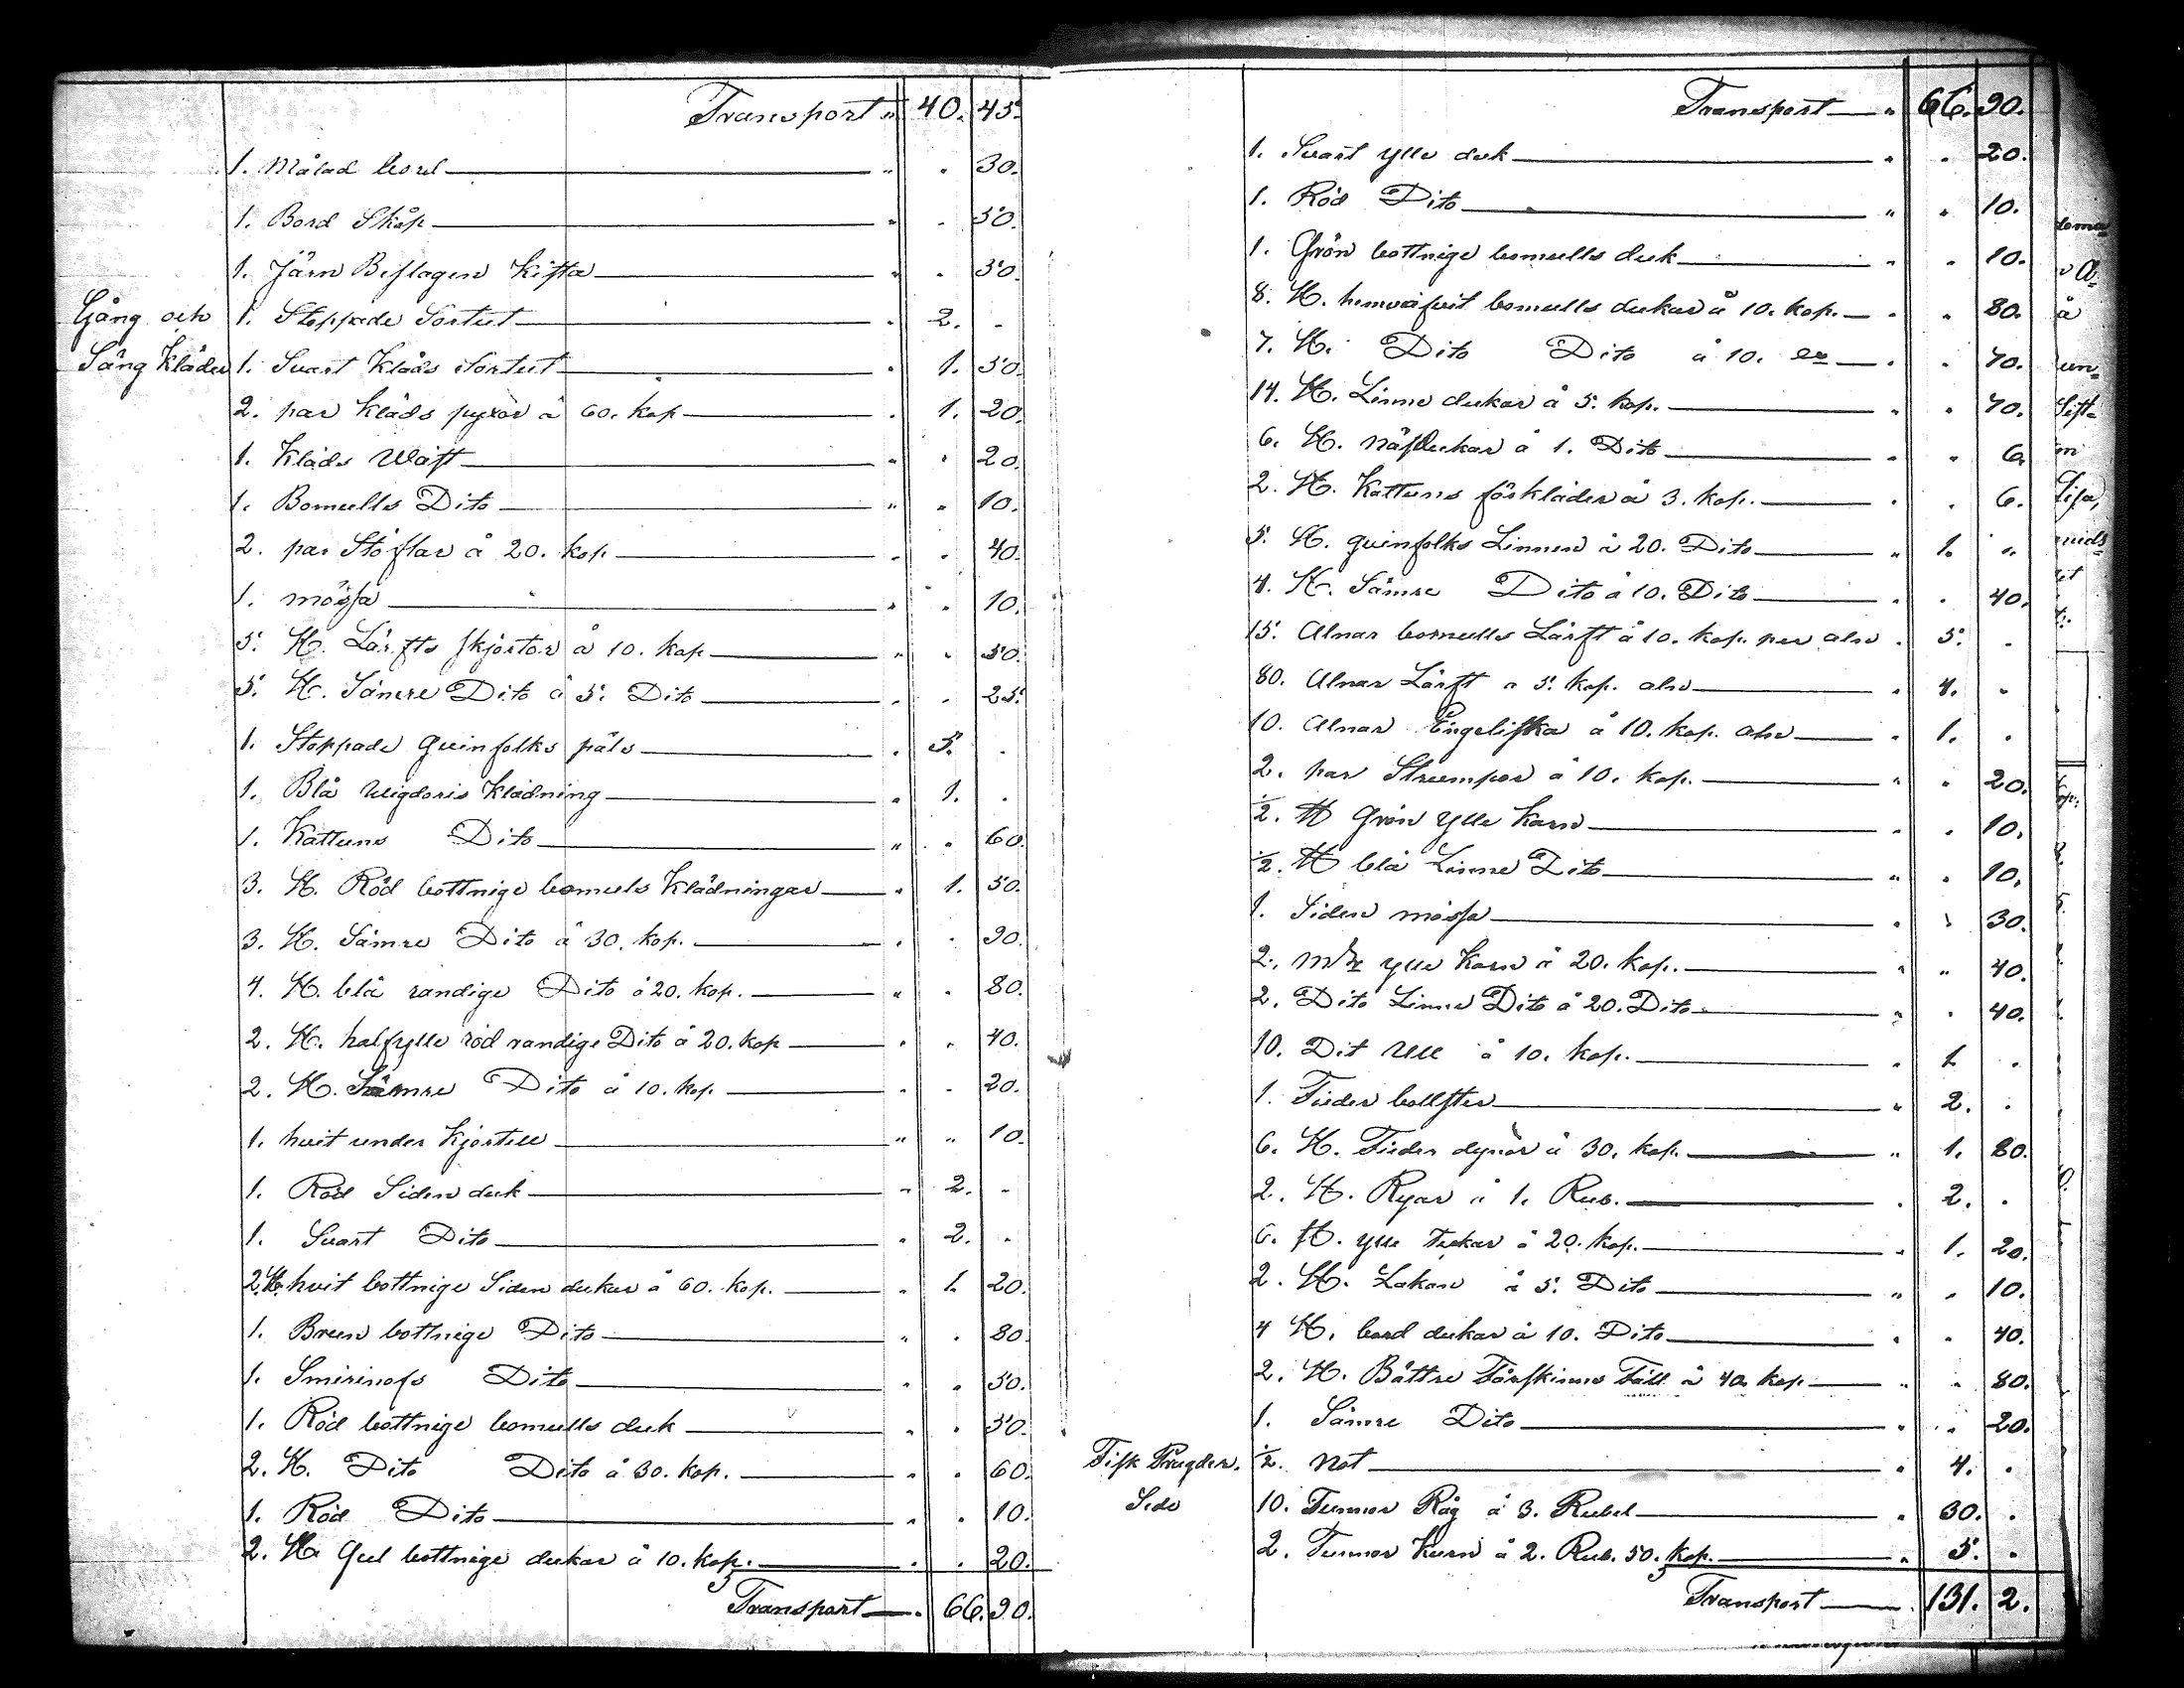 Transport " 40. 45.
1. Målad bord " . 30.
1. Bord Skåp " . 50.
1. Järn Beslagen Kista " . 30.
Gång och 1. Stoppade Sortut " 2. .
Säng Kläder 1. Svart Kläds Sortut " 1. 50.
2. par Kläds pyxor à 60. kop " 1. 20.
1. Kläds Wäst " . 20.
1. Bomulls Dito " " 10.
2. par Stöflar à 20. kop " . 40.
1. mössa " . 10.
5. St. Lärfts skjortor à 10. kop " . 50.
5. St. Sämre Dito à 5. Dito " . 25.
1. Stoppade qvinfolks päls " 5. .
1. Blå Wigdoris Klädning " 1. .
1. Kattuns Dito " . 60.
3. St. Röd bottnige bomuls Klädningar " 1. 50.
3. St. Sämre Dito à 30. kop. " . 90.
4. St. blå randige Dito à 20. kop. " . 80.
2. St. halfylle röd randige Dito à 20. kop " . 40.
2. St. Sämre Dito à 10. kop. " . 20.
1. hvit under Kjortell " " 10.
1. Röd Siden duk " 2. .
1. Svart Dito " 2. .
2. St. hvit bottnige Siden dukar à 60. kop. " 1. 20.
1. Brun bottnige Dito " . 80.
1. Dito " . 50.
1. Röd bottnige bomulls duk " . 30.
2. St. Dito Dito à 30. kop. " . 60.
1. Röd Dito " . 10.
2. St. Gul bottnige dukar à 10. kop. " . 20.
Transport " 66. 90.
Transport " 66. 90.
1. Svart ylle duk " . 20.
1. Röd Dito " " 10.
1. Grön bottnige bomulls duk " . 10.
8. St. hemväfvit bomulls dukar à 10. kop. " " 80.
7. St. Dito Dito à 10. " . 70.
14. St. Linne dukar à 5. kop. " " 70.
6. St. näsdukar à 1. Dito " " 6.
2. St. Kattuns förkläder à 3. kop. " . 6.
5. St. qvinfolks Linnen à 20. Dito " 1. "
4. St. Sämre Dito à 10. Dito " . 40.
15. Alnar bomulls Lärft à 10. kop. per aln . 5. .
80. Alnar Lärft à 5. kop. aln " 4. "
10. Alnar Engelska à 10. kop. aln " 1. .
2. par Strumpor à 10. kop. " " 20.
1/2. ℔ Grön Ylle Karn " . 10.
1/2. ℔ blå Linne Dito " . 10.
1. Siden mössa " . 30.
2. ylle Karn à 20. kop. " " 40.
2. Dito Linne Dito à 20. Dito " . 40.
10. Dit Ull à 10. kop. " 1. .
1. Fieder bollster " 2. .
6. St. Fieder dynor à 30. kop. " 1. 80.
2. St. Ryar à 1. Rub. . 2. .
6. St. ylle Täckar à 20. kop. " 1. 20.
2. St. Lakan à 5. Dito " " 10.
4 St. bord dukar à 10. Dito " " 40.
2. St. Bättre Fårskinns Fäll à 40. kop " " 80.
1. Sämre Dito " . 20.
Fisk Bragder. 1/2. Not " 4. .
Sede 10. Tunnor Råg à 3. Rubel " 30. .
2. Tunnor Kurn à 2. Rub. 50. kop. " 5. .
Transport . 131. 2.